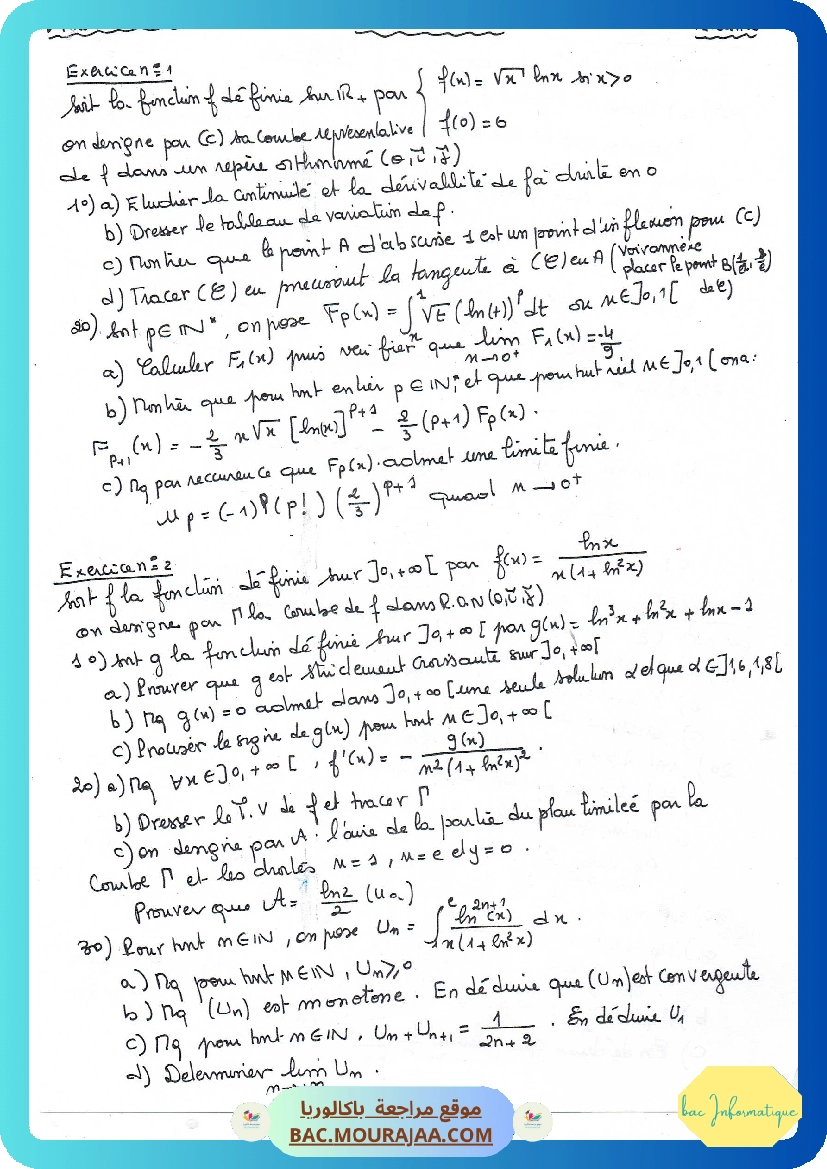 Exercice n°1
Soit la fonction f définie sur IR+ par { f(x) = √x lnx si x>0
on designe par (C) sa courbe représentative { f(0) = 0
de f dans un repère orthonormé (o,i,j)
1°) a) Etudier la continuité et la dérivabilité de f à droite en 0
b) Dresser le tableau de variation de f.
c) Montrer que le point A d'abscisse 1 est un point d'inflexion pour (C)
d) Tracer (C) en precisant la tangente à (C) en A (
placer le point B(
de C)
2°) Soit p∈IN*, on pose Fp(x) = ∫ₓ¹ √t (ln(t))ᵖ dt où x∈]0,1[
a) Calculer F₁(x) puis verifier que lim x→0⁺ F₁(x) = -4/9
b) Montrer que pour tout entier p∈IN*, et que pour tout réel x∈]0,1[ on a:
Fp+1(x) = -2/3 x√x [ln(x)]^p+1 - 2/3 (p+1) Fp(x).
c) Mq par reccurence que Fp(x) admet une limite finie.
Up = (-1)ᵖ (p!) (2/3)^p+1 quand x→0⁺
Exercice n°2
Soit f la fonction définie sur ]0,+∞[ par f(x) = lnx / x(1+ln²x)
on designe par Γ la courbe de f dans R.O.N (o,i,j)
1°) Soit g la fonction définie sur ]0,+∞[ par g(x) = ln³x + ln²x + lnx - 1
a) Prouver que g est strictement croissante sur ]0,+∞[
b) Mq g(x) = 0 admet dans ]0,+∞[ une seule solution α et que α∈]1,6,1,8[
c) Préciser le signe de g(x) pour tout x∈]0,+∞[
2°) a) Mq ∀x∈]0,+∞[ , f'(x) = - g(x) / x²(1+ln²x)² .
b) Dresser le T.V de f et tracer Γ
c) on designe par A : l'aire de la partie du plan limiteé par la
Courbe Γ et les droites x = 1, x = e et y = 0.
Prouver que A = ln2/2 (u.a)
3°) Pour tout n∈IN, on pose Un = ∫₁ᵉ ln^2n+1(x) / x(1+ln²x) dx .
a) Mq pour tout n∈IN, Un≥0
b) Mq (Un) est monotone. En déduire que (Un) est convergente
c) Mq pour tout n∈IN, Un + Un+1 = 1/2n+2 . En déduire U₁
d) Determiner lim Un .
موقع مراجعة باكالوريا
BAC.MOURAJAA.COM
bac Informatique